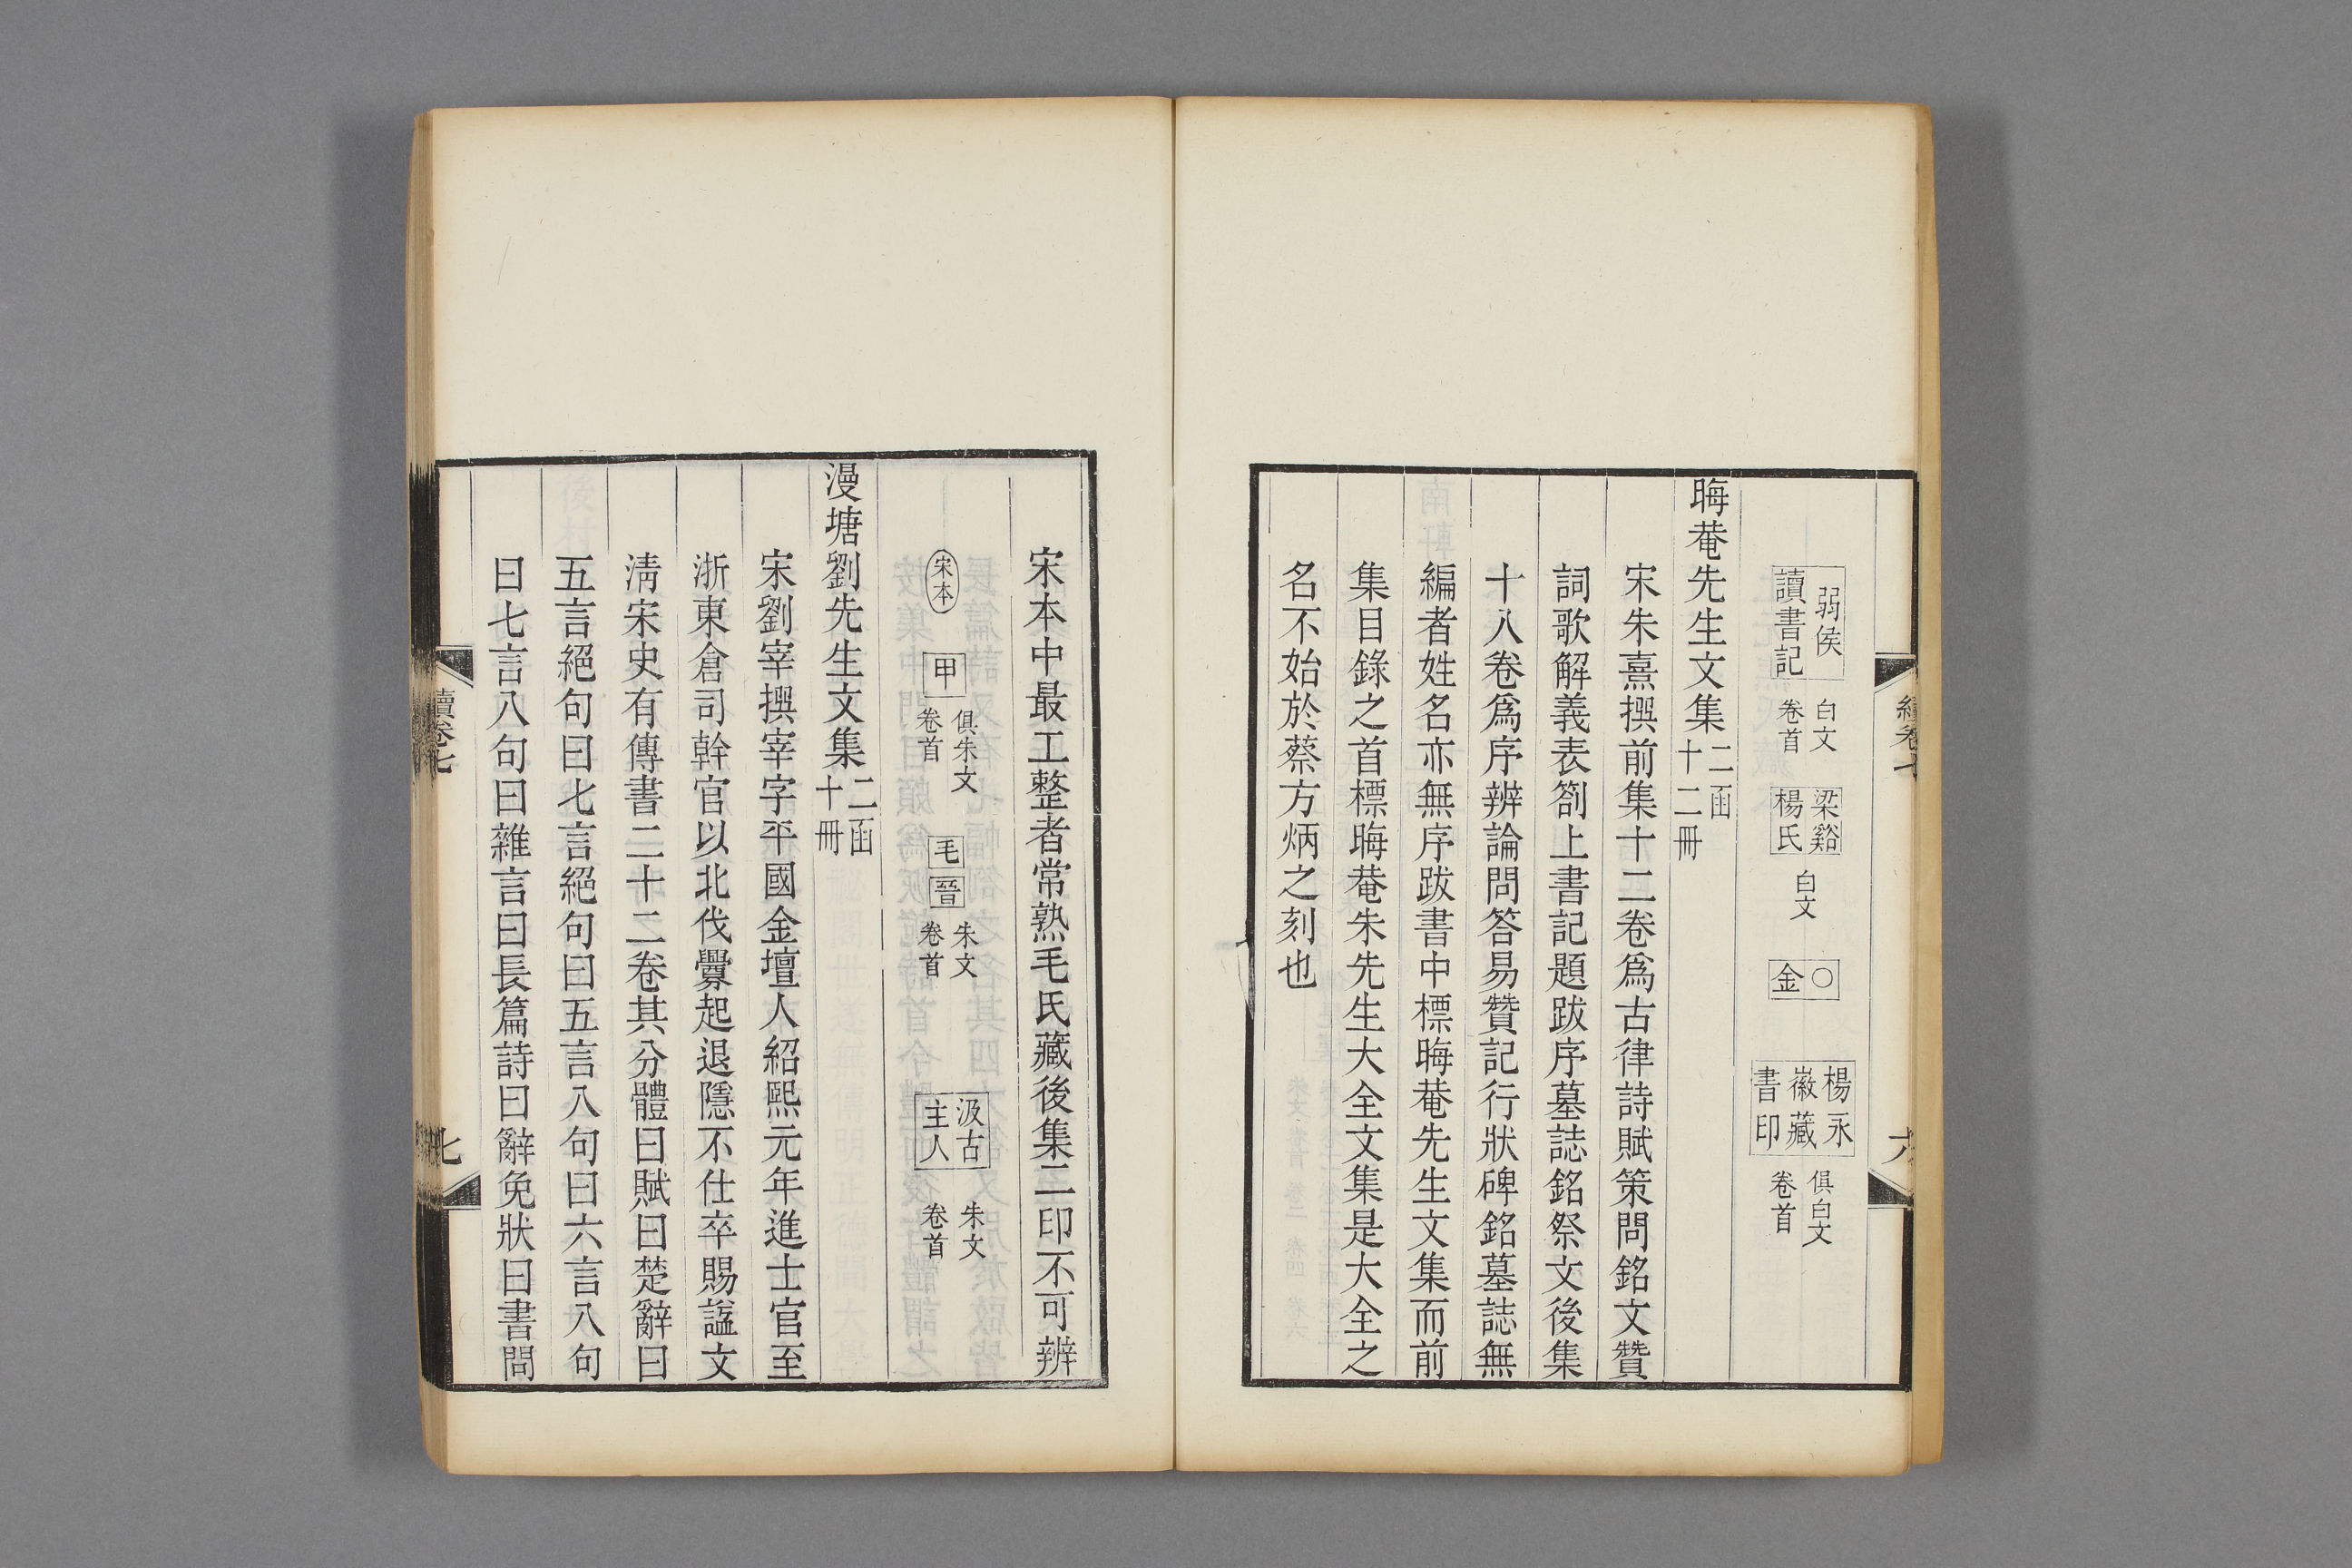 續卷七
六
弱侯
讀書記
白文
卷首
梁谿
楊氏
白文
〇
金
楊永
徽藏
書印
俱白文
卷首
晦菴先生文集二函
十二冊
宋朱熹撰前集十二卷爲古律詩賦策問銘文贊
詞歌解義表劄上書記題跋序墓誌銘祭文後集
十八卷爲序辨論問答易贊記行狀碑銘墓誌無
編者姓名亦無序跋書中標晦菴先生文集而前
集目錄之首標晦菴朱先生大全文集是大全之
名不始於蔡方炳之刻也
宋本中最工整者常熟毛氏藏後集二印不可辨
宋本
甲
俱朱文
卷首
毛
晉
朱文
卷首
汲古
主人
朱文
卷首
漫塘劉先生文集二函
十冊
宋劉宰撰宰字平國金壇人紹熙元年進士官至
浙東倉司幹官以北伐釁起退隱不仕卒賜諡文
淸宋史有傳書二十二卷其分體曰賦曰楚辭曰
五言絕句曰七言絕句曰五言八句曰六言八句
曰七言八句曰雜言曰長篇詩曰辭免狀曰書問
續卷七
七